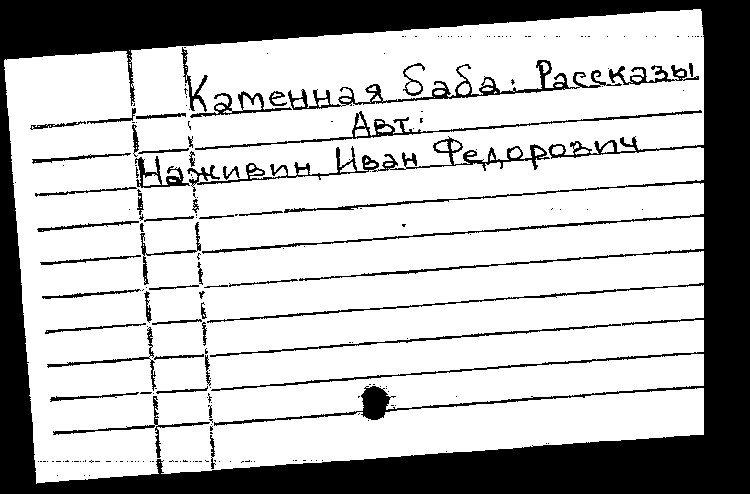 Каменная баба: Рассказы
Авт.:
Наживин, Иван Федорович